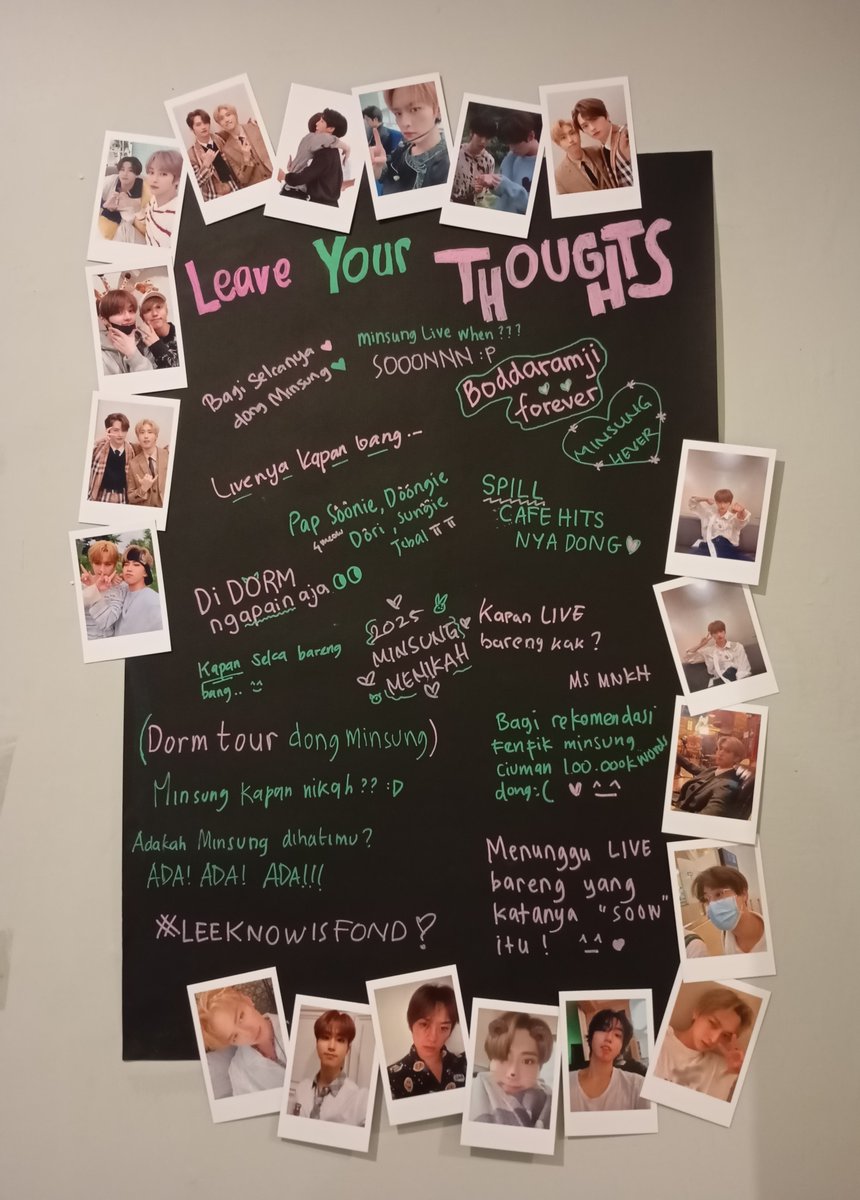 Leave Your THOUGHTS
Bagi Selcanya
dong Minsung
minsung Live when???
SOOONNN :P
Boddaramji
forever
MINSUNG
4EVER
Livenya kapan bang...
Pap Soonie, Doongie
4 meow Dori, sungie
Jebal ㅠㅠ
SPILL
CAFE HITS
NYA DONG
Di DORM
ngapain aja
2025
MINSUNG
MENIKAH
Kapan LIVE
bareng kak?
Kapan Selca bareng
bang..
MS MNKH
(Dorm tour dong Minsung)
Bagi rekomendasi
fenfik minsung
ciuman 100.000k words
dong :( ^_^
Minsung kapan nikah?? :D
Adakah Minsung dihatimu?
ADA! ADA! ADA!!!
Menunggu LIVE
bareng yang
katanya "SOON"
itu! ^_^
#LEEKNOWISFOND